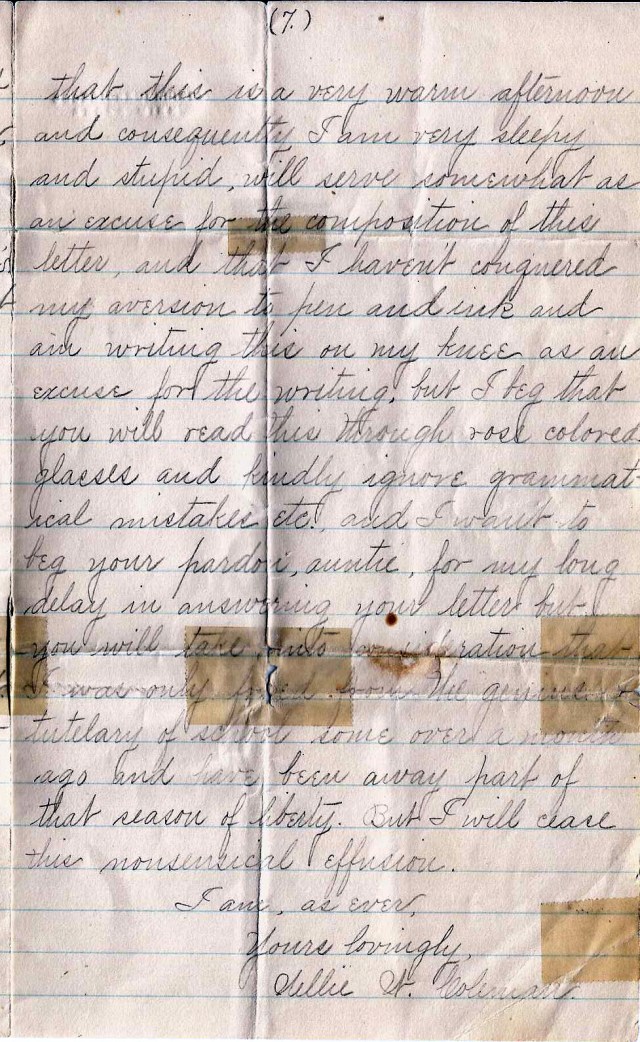 (7.)
that this is a very warm afternoon
and consequently I am very sleepy
and stupid, will serve somewhat as
an excuse for the composition of this
letter, and that I haven't conquered
my aversion to pen and ink and
am writing this on my knee as an
excuse for the writing, but I beg that
you will read this through rose colored
glasses and kindly ignore grammat-
ical mistakes etc., and I want to
beg your pardon, auntie, for my long
delay in answering your letter but
you will take into consideration that
I was only freed from the
tutelary of school some over a month
ago and have been away part of
that season of liberty. But I will cease
this nonsensical effusion.
I am, as ever,
Yours lovingly,
Nellie W. Coleman.